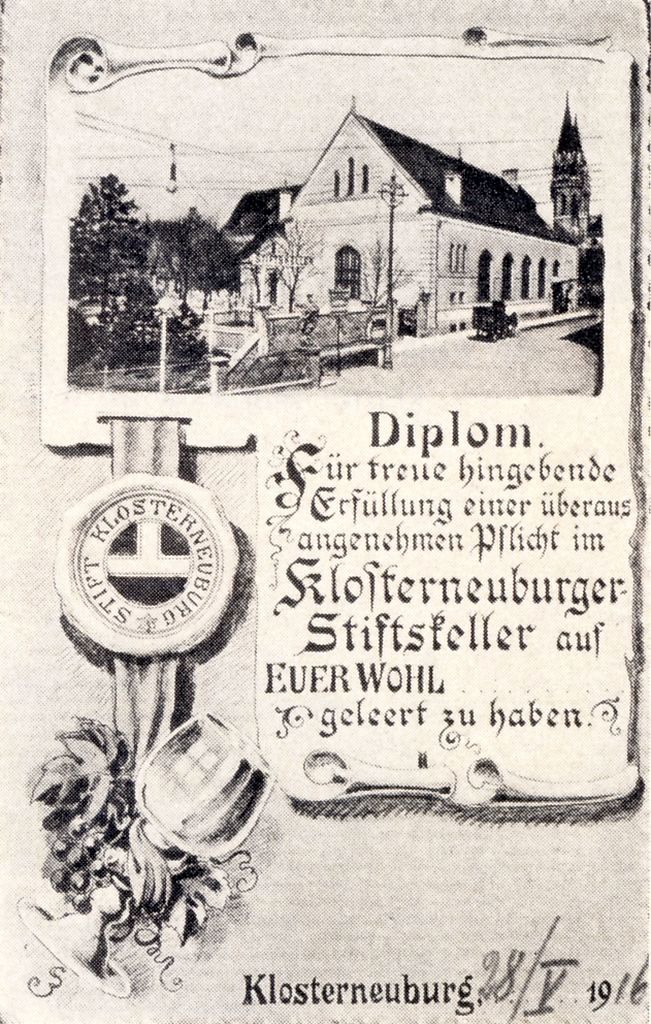 Diplom.
Für treue hingebende
Erfüllung einer überaus
angenehmen Pflicht im
Klosterneuburger-
Stiftskeller auf
EUER WOHL
geleert zu haben.
STIFT KLOSTERNEUBURG
Klosterneuburg, 28/V 1916